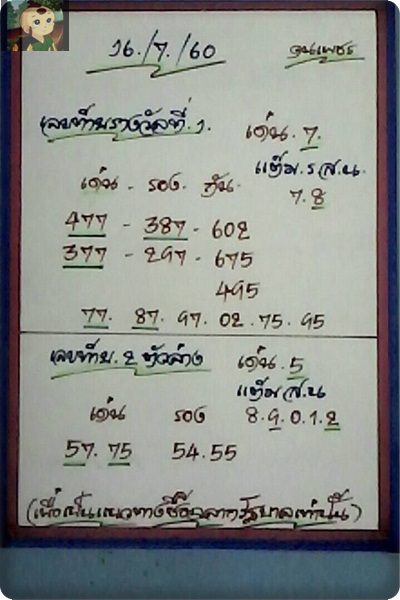 16./7./60 จนเพชร
เลขท้ายรางวัลที่.1. เด่น.7.
แต้ม.ร.ส.น.
เด่น - รอง - กัน. 7.8
477 - 387 - 602
377 - 297 - 675
495
77. 87. 97. 02. 75. 95
เลขท้าย. 2 ตัวล่าง เด่น. 5
แต้ม ส.น
เด่น รอง 8.9.0.1.2
57. 75 54.55
(เพื่อเป็นแนวทางซื้อสลากรัฐบาลเท่านั้น)